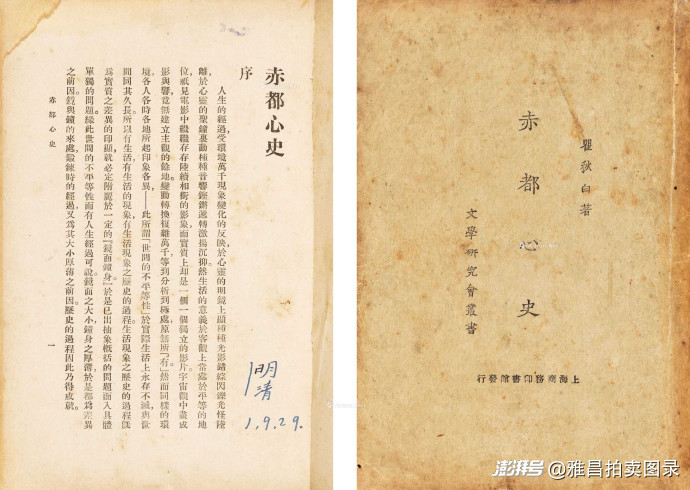 赤都心史
序
人生的經過,受環境萬千現象變化的反映,於心靈的明鏡上顯種種光影,錯綜閃鑠,光怪陸
離,於心靈的聖鐘裏動種種音響,鏗鏘遞轉,激揚沉抑。然生活的意義於客觀上常處於平等的地
位,祇見電影中繼繼存存陸續相銜的影象,而實質上却是一個一個獨立的影片。宇宙觀中盡成
影與響,竟無建立主觀的餘地。變動轉換複雜萬千,等到分析到極處,原無所『有』。然而同樣的環
境各人各時各地所起印象各異——此所謂『世間的不平等性』於實際生活上永存不滅,與世
間同其久長。所以有生活,有生活的現象,有生活現象之歷史的過程。生活現象之歷史的過程旣
爲實質之差異的印顯,就必定附麗於一定的『鏡面鐘身』於是已出抽象概括的問題而入具體
單獨的問題。緣此世間的不平等性而有人生經過可說。鏡面之大小,鐘身之厚薄,於是都爲差異
之前因。鏡與鐘的來處,鍛鍊時的經過,又爲其大小厚薄之前因。歷史的過程因此乃得成就。
赤都心史
一
明清
1.9.29.
瞿秋白著
赤都心史
文學研究會叢書
上海商務印書館發行
澎湃号@雅昌拍卖图录